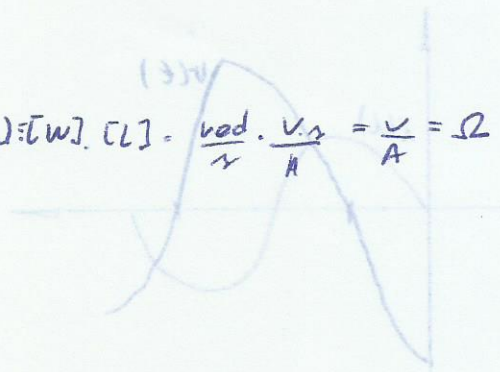 ]=[W].[L] = rad/s . V.s/A = V/A = Ω